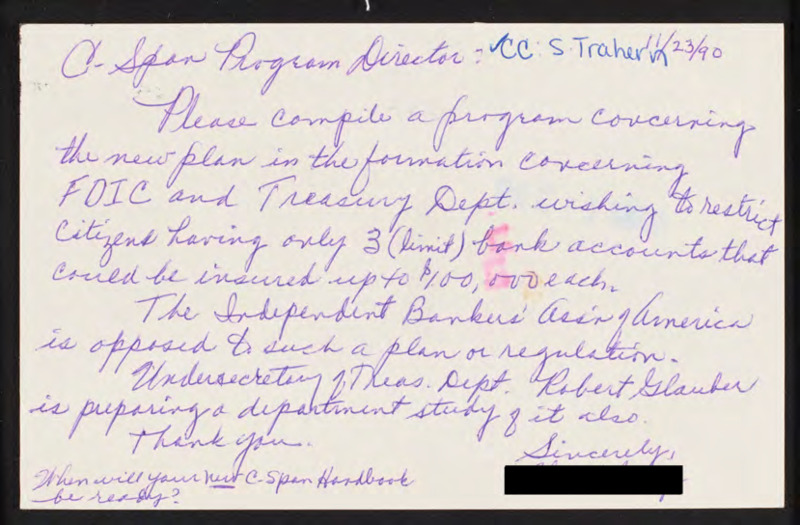 C-Span Program Director: CC: S. Trahern 11/23/90
Please compile a program concerning
the new plan in the formation concerning
FDIC and Treasury Dept. wishing to restrict
citizens having only 3 (limit) bank accounts that
could be insured up to $100,000 each.
The Independent Bankers' Ass'n of America
is opposed to such a plan or regulation.
Undersecretary of Treas. Dept. Robert Glauber
is preparing a department study of it also.
Thank you.
Sincerely,
When will your new C-Span Handbook
be ready?